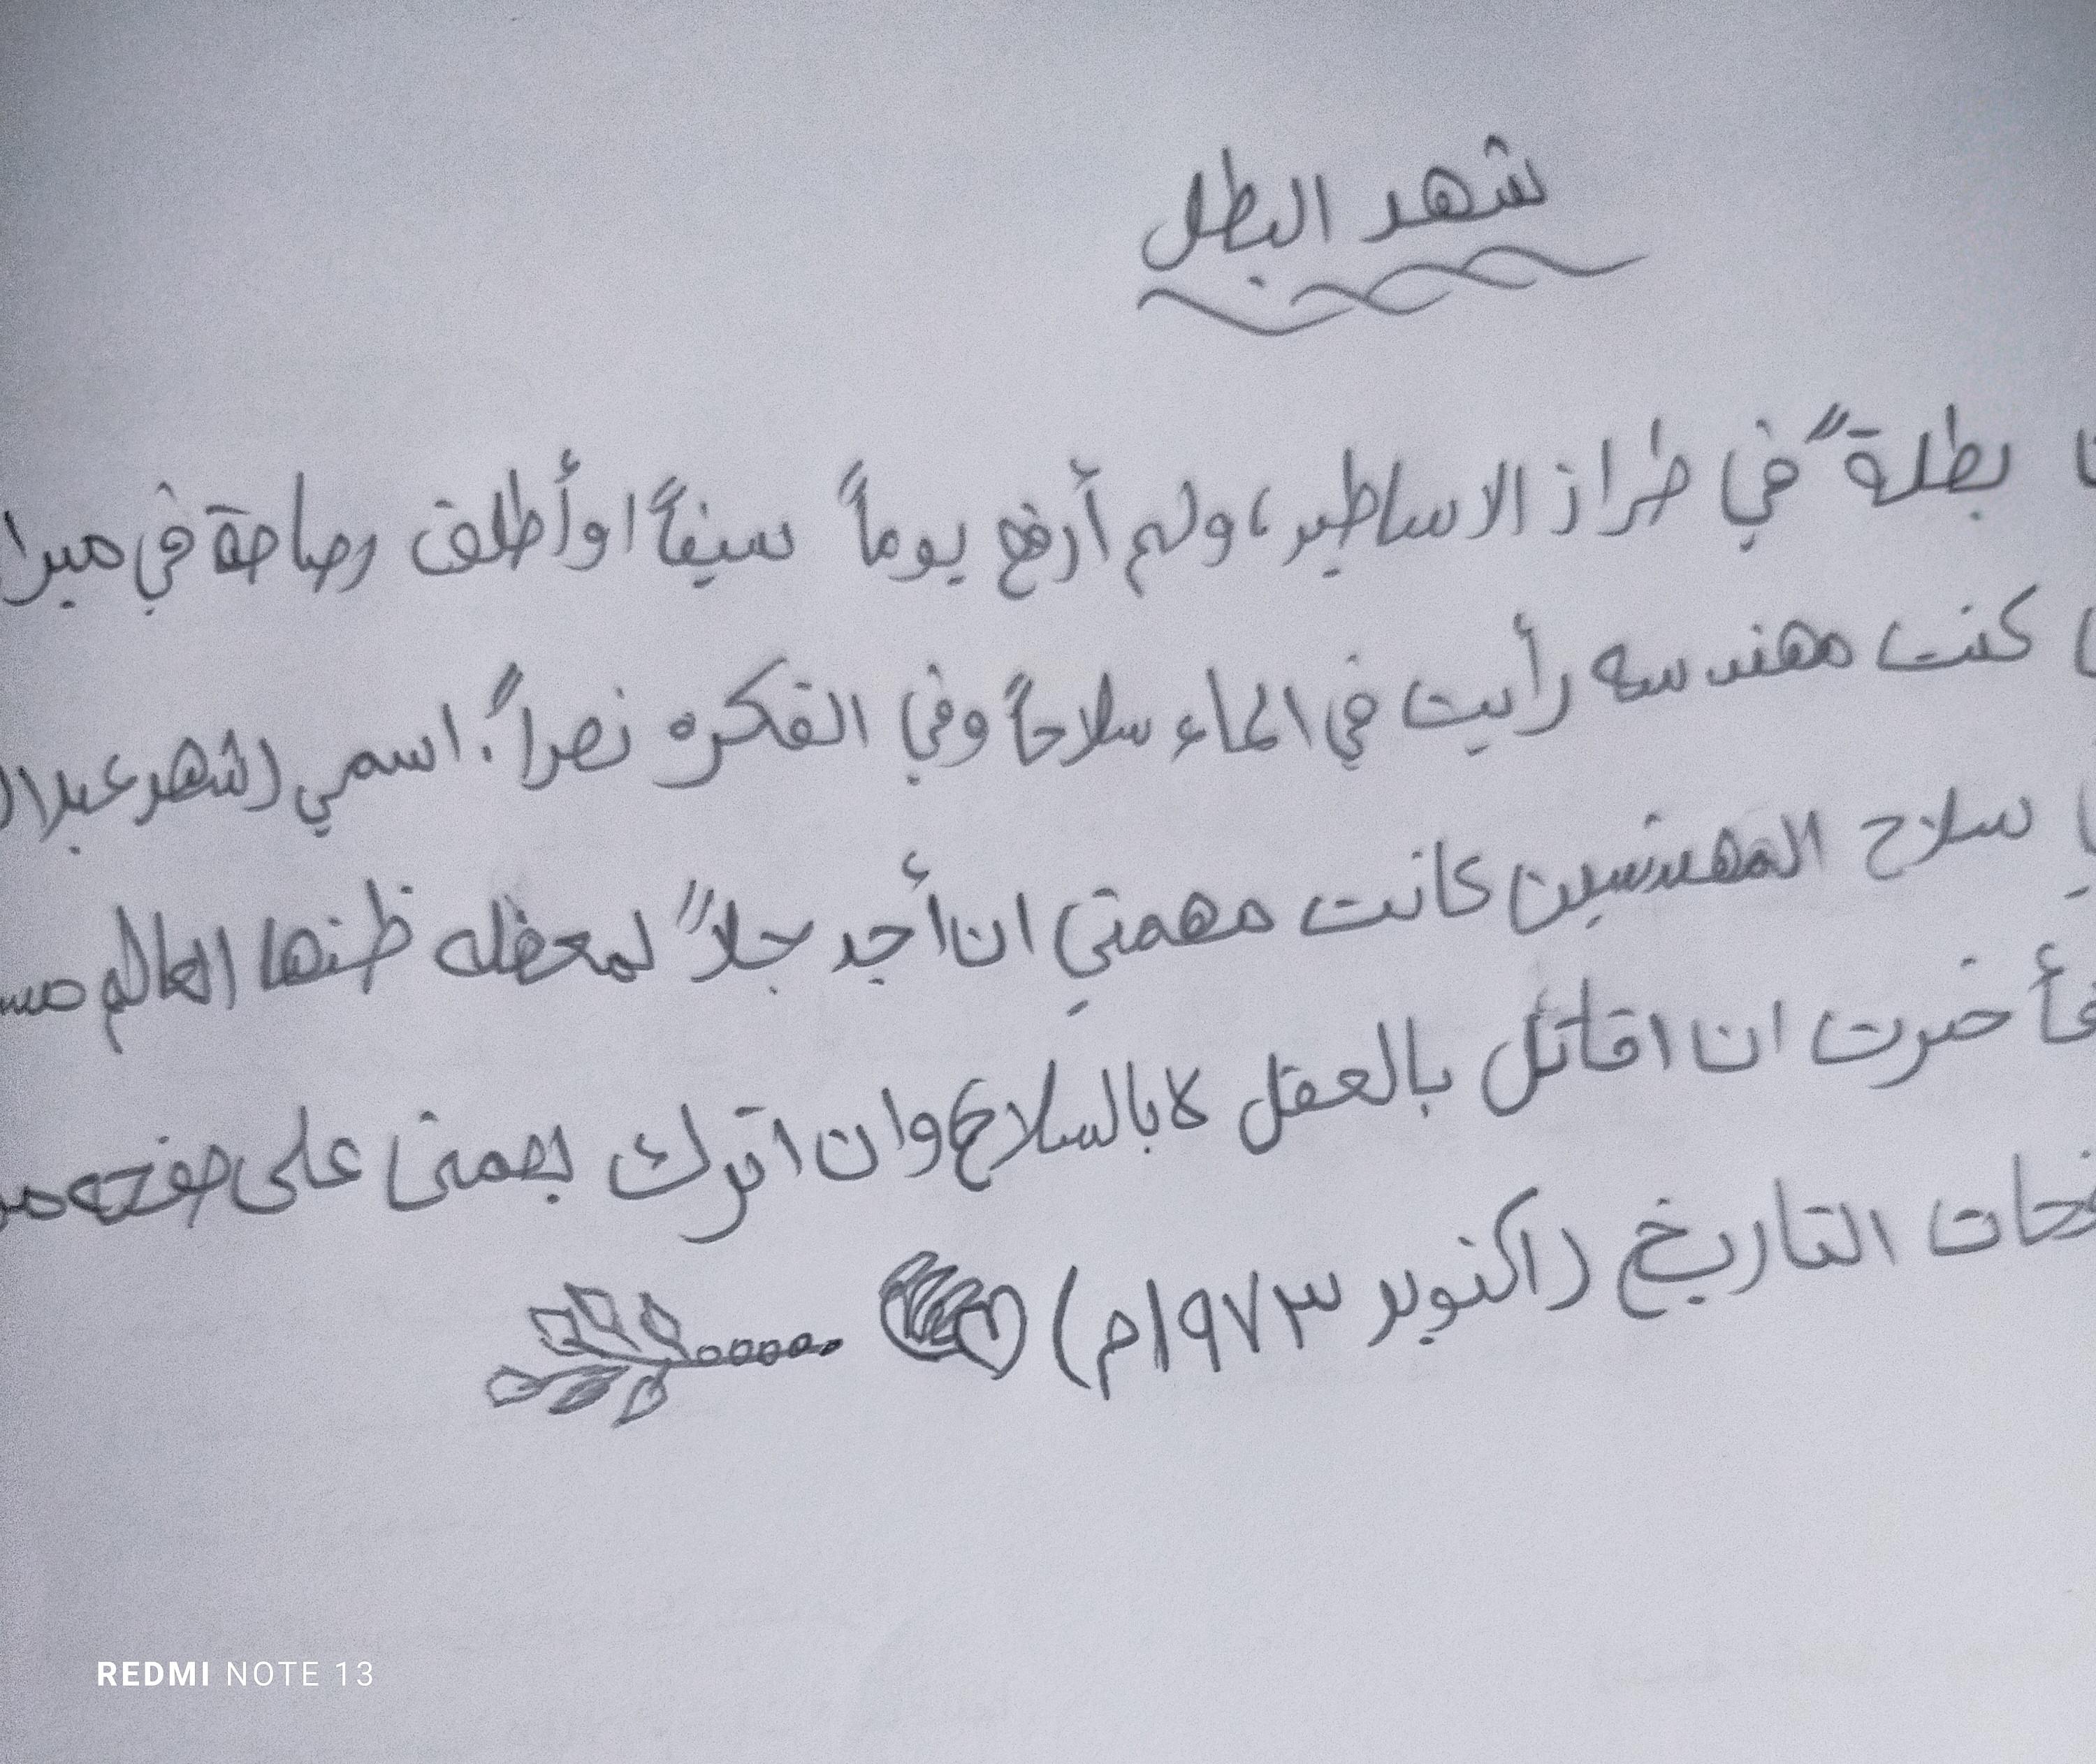 شهد البطل
بطلةً في طراز الاساطير، ولم أرفع يوماً سيفاً اوأطلق رصاصة في
كنت مهندسه رأيت في الماء سلاحاً وفي الفكره نصراً. اسمي (شهد
سلاح المهندسين كانت مهمتي ان أجد جلاً لمعظله ظنها العالم
فأخترت ان اقاتل بالعقل لا بالسلاح وان اترك بصمتى على صفحه
التاريخ (اكتوبر ١٩٧٣م)
REDMI NOTE 13